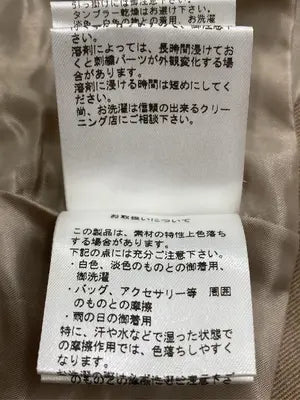 タンブラー乾燥はお避け下さい。
溶剤によっては、長時間浸けてお
くと刺繍パーツが外観変化する場
合があります。
溶剤に浸ける時間は短めにしてく
ださい。
尚、お洗濯は信頼の出来るクリー
ニング店にご相談下さい。
お取扱いについて
この製品は、素材の特性上色落ち
する場合があります。
下記の点には充分ご注意下さい。
・白色、淡色のものとの御着用、
御洗濯
・バッグ、アクセサリー等 周囲
のものとの摩擦
・雨の日の御着用
特に、汗や水などで湿った状態で
の摩擦作用では、色落ちしやすく
なります。